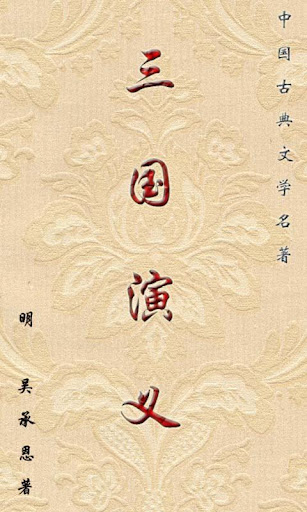 中国古典文学名著
三国演义
明 吴承恩著